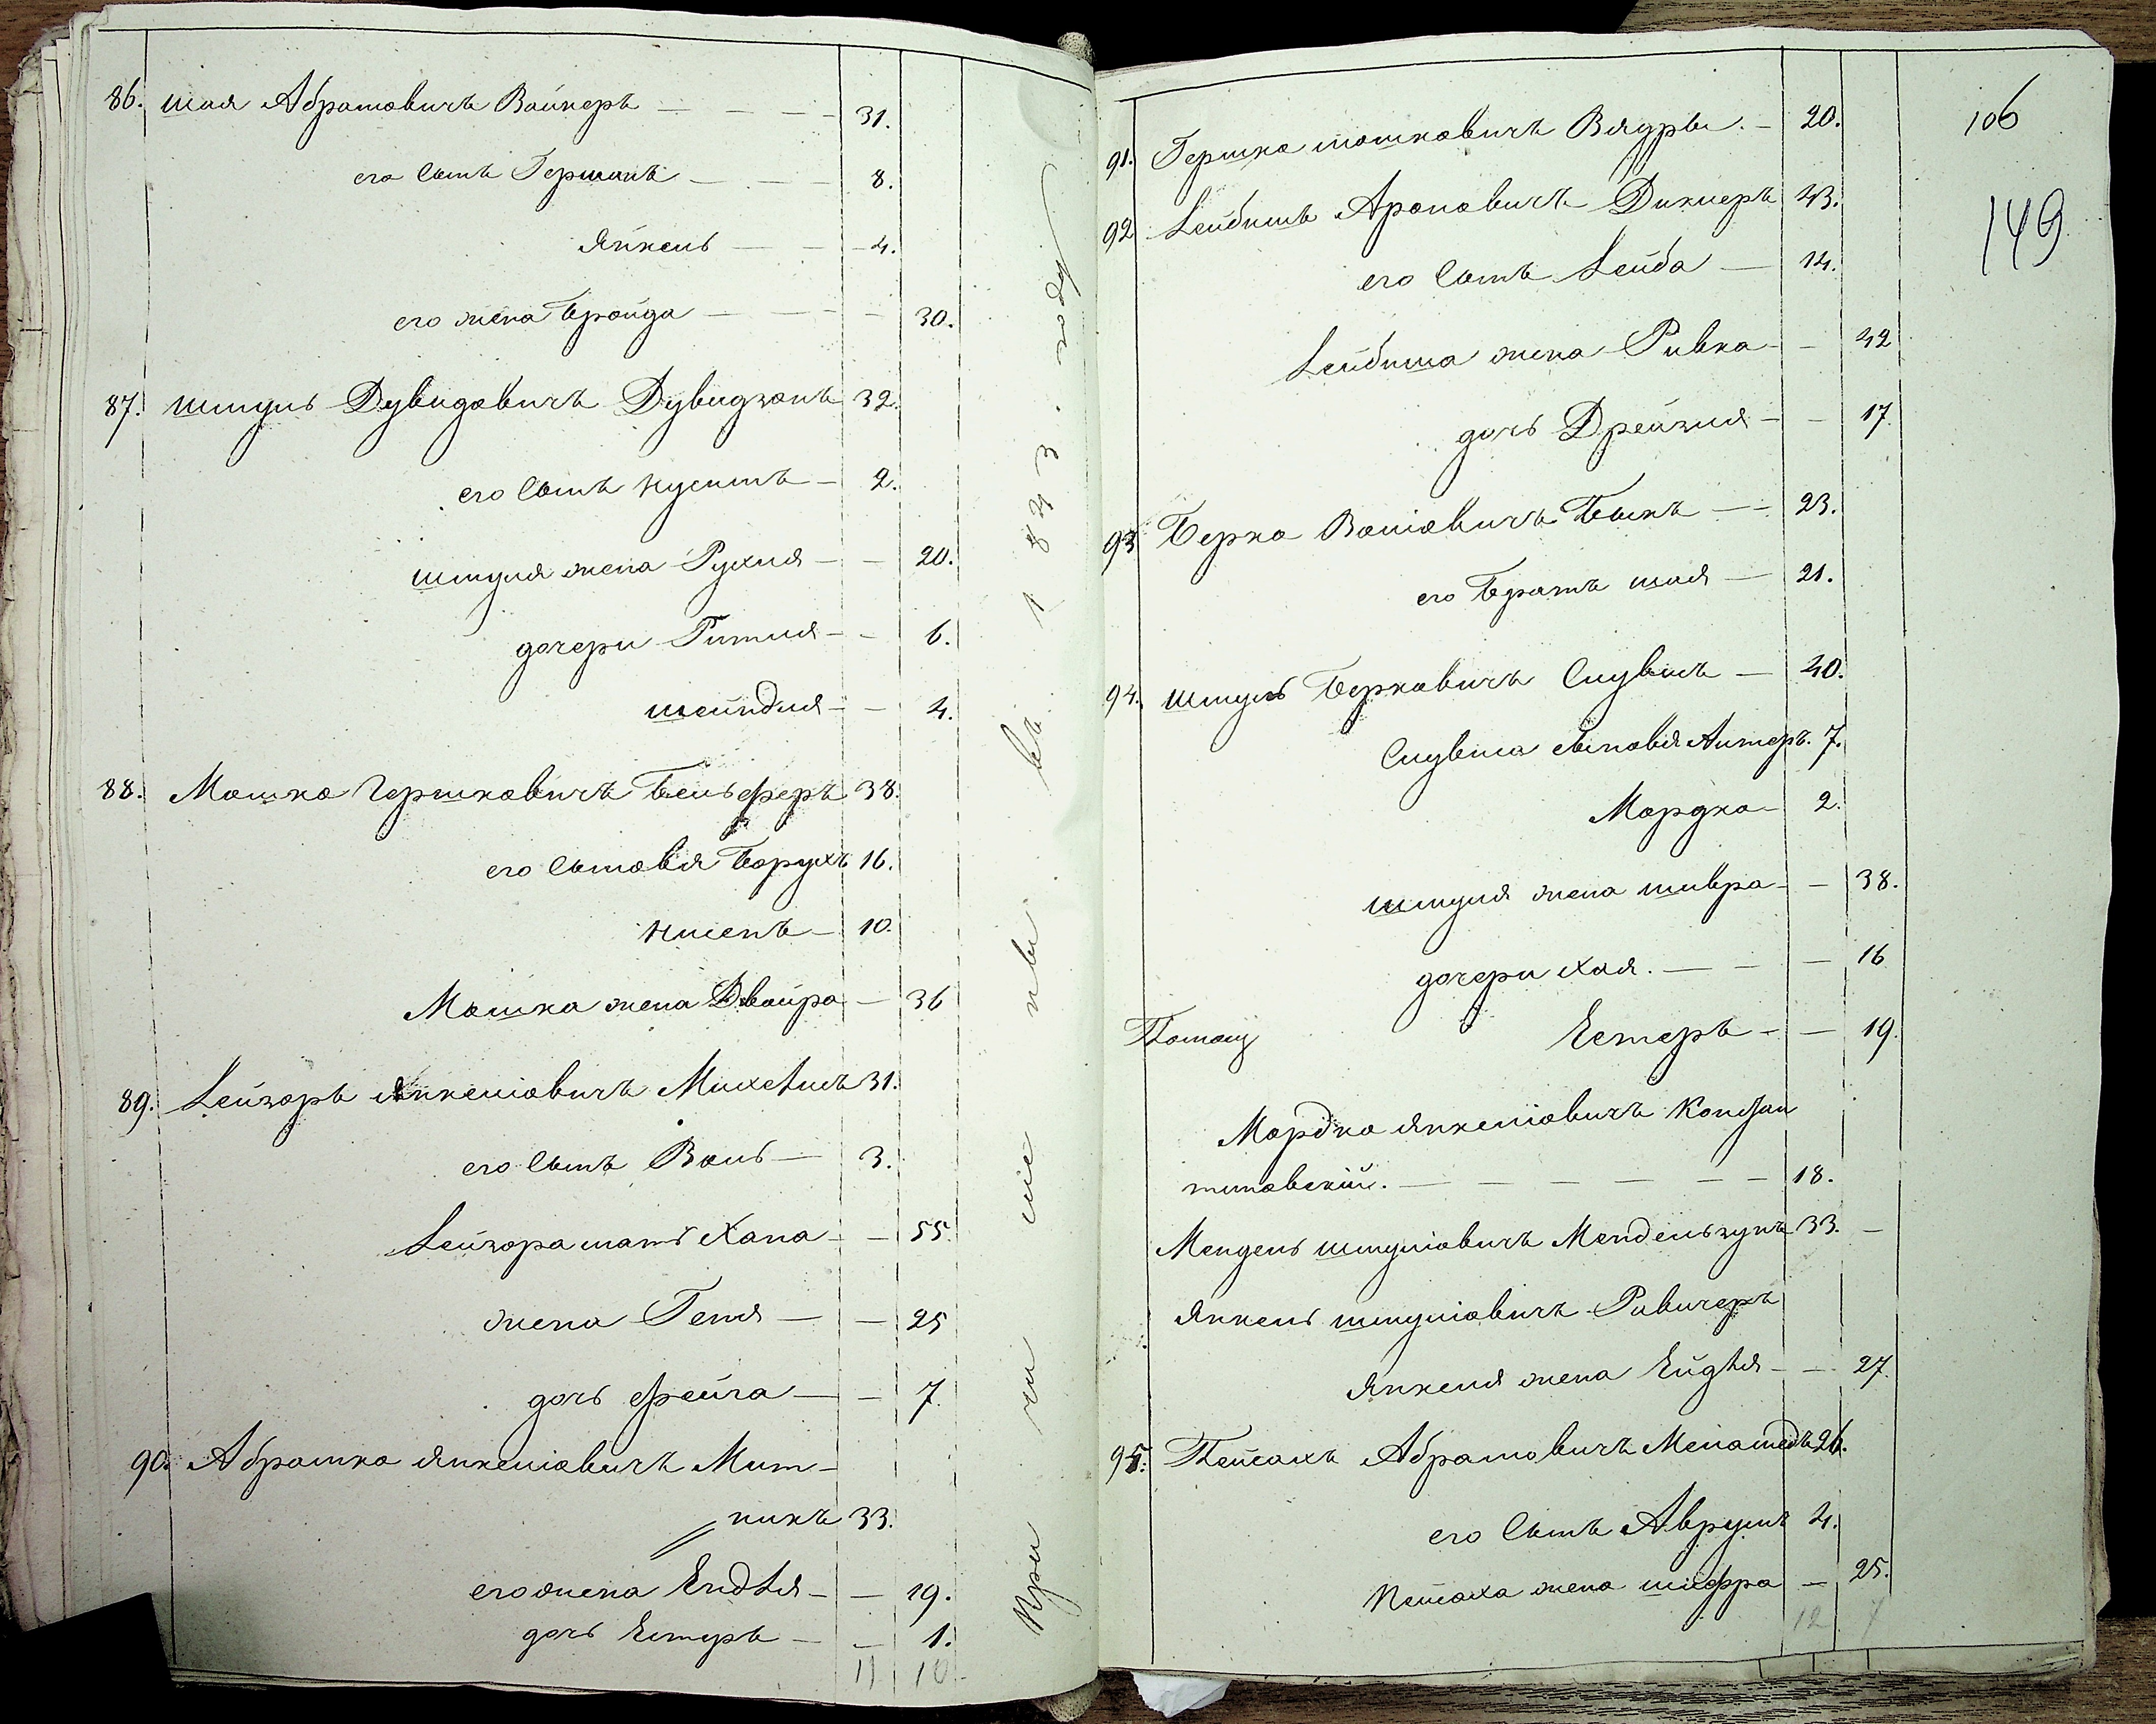 86. Шая Абрамовичъ Вайнеръ — — — 31.
его Сынъ Гершонъ — — — 8.
Янкель — — — 4.
его жена Бройда — — — 30.
87. Шмуль Дувидовичъ Дувидзонъ 32.
его Сынъ Нусимъ — 2.
Шмуля жена Рухля — — 20.
дочери Гитля — — 6.
Шейндля — — 4.
88. Мошко Гершковичъ Бельферъ 38.
его Сыновья Борухъ 16.
Нисенъ — 10.
Мошка жена Двойра — 36
89. Лейзоръ Янкеліовичъ Михелисъ 31.
его Сынъ Воль — 3.
Лейзора мать Хана — — 55.
жена Геня — — 25
дочь Фейга — — 7.
90. Абрамко Янкеліовичъ Мит-
никъ 33.
его жена Ендля — — 19.
дочь Естеръ — — 1.
11 10
въ 1843. году
106
149
91. Гершко Мошковичъ Вядры. — 20.
92 Лейбишъ Ароновичъ Дикеръ 43.
его Сынъ Лейба — 14.
Лейбиша жена Ривка — — 42
дочь Дрейзля — — 17.
93 Берко Воліовичъ Быкъ — — 23.
его Братъ Шая — 21.
94. Шмуль Берковичъ Слувисъ — 40.
Слувиса Сыновья Антеръ. 7.
Мордко — 2.
Шмуля жена Шивра — — 38.
дочери Хая. — — — 16
Естеръ — — 19.
Мордко Янкеліовичъ Констан
тиновскій. — — — — — — 18.
Мендель Шмуліовичъ Мендельзунъ 33. —
Янкель Шмуліовичъ Ривичеръ
Янкеля жена Ейдля — — 27.
95. Пейсахъ Абрамовичъ Меламедъ 26.
его Сынъ Аврумъ 4.
Пейсаха жена Шифра — 25.
12 7